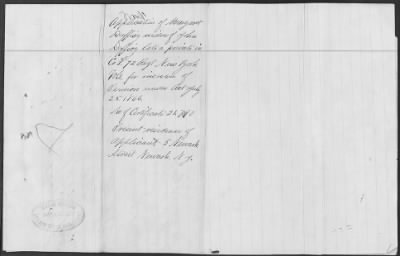 Application of Margaret
Duffin widow of John
Duffin late a private in
Co E 72 Regt New York
Vols for increase of
Pension under act July
25 1866
No of Certificate
Present residence of
Applicant 5 Newark
Street Newark N.J.